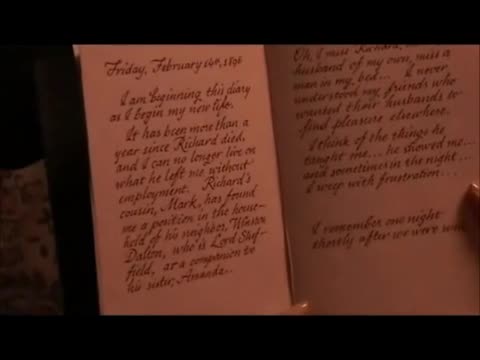 Friday, February 14th, 1896
I am beginning this diary
as I begin my new life.
It has been more than a
year since Richard died,
and I can no longer live on
what he left me without
employment. Richard's
cousin, Mark, has found
me a position in the house-
hold of his neighbor,
Dalton, who is Lord Shef-
field, as a companion to
his sister, Amanda...
Oh, I miss Richard,
husband of my own, miss a
man in my bed... I never
understood my friends who
wanted their husbands to
find pleasure elsewhere.
I think of the things he
taught me... he showed me...
and sometimes in the night...
I weep with frustration...
I remember one night
shortly after we were